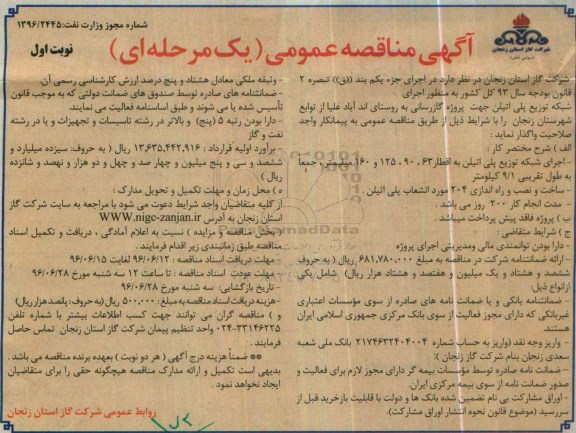 شماره مجوز وزارت نفت: ۱۳۹۶/۲۴۴۵
شرکت گاز استان زنجان
(سهامی خاص)
آگهی مناقصه عمومی (یک مرحله‌ای)
نوبت اول
شرکت گاز استان زنجان در نظر دارد در اجرای جزء یکم بند ((ق)) تبصره ۲
قانون بودجه سال ۹۳ کل کشور به منظور اجرای
شبکه توزیع پلی اتیلن جهت پروژه گازرسانی به روستای اند آباد علیا از توابع
شهرستان زنجان را با شرایط ذیل از طریق مناقصه عمومی به پیمانکار واجد
صلاحیت واگذار نماید:
الف) شرح مختصر کار:
- اجرای شبکه توزیع پلی اتیلن به اقطار ۶۳، ۹۰، ۱۲۵ و ۱۶۰ میلیمتر، جمعاً
به طول تقریبی ۹/۱ کیلومتر
- ساخت و نصب و راه اندازی ۲۰۴ مورد انشعاب پلی اتیلن.
- مدت انجام کار ۲۰۰ روز می باشد.
ب) پروژه فاقد پیش پرداخت میباشد.
ج) شرایط متقاضی:
- دارا بودن توانمندی مالی ومدیریتی اجرای پروژه
- ارائه ضمانتنامه شرکت در مناقصه به مبلغ ۶۸۱,۷۸۰,۰۰۰ ریال (به حروف:
ششصد و هشتاد و یک میلیون و هفتصد و هشتاد هزار ریال) شامل یکی
ازانواع ذیل:
- ضمانتنامه بانکی و یا ضمانت نامه های صادره از سوی مؤسسات اعتباری
غیربانکی که دارای مجوز فعالیت از سوی بانک مرکزی جمهوری اسلامی ایران
هستند.
- واریز وجه نقد (واریز به حساب شماره ۲۱۷۴۶۳۲۴۰۴۰۰۴ بانک ملی شعبه
سعدی زنجان بنام شرکت گاز زنجان):
- ضمانت نامه صادره توسط مؤسسات بیمه گر دارای مجوز لازم برای فعالیت و
صدور ضمانت نامه از سوی بیمه مرکزی ایران.
- اوراق مشارکت بی نام تضمین شده بانک ها و دولت با قابلیت بازخرید قبل از
سررسید (موضوع قانون نحوه انتشار اوراق مشارکت).
- وثیقه ملکی معادل هشتاد و پنج درصد ارزش کارشناسی رسمی آن.
- ضمانتنامه های صادره توسط صندوق های ضمانت دولتی که به موجب قانون
تأسیس شده یا می شوند و طبق اساسنامه فعالیت می نمایند.
- دارا بودن رتبه ۵ (پنج) و بالاتر در رشته تاسیسات و تجهیزات و یا در رشته
نفت و گاز
- برآورد اولیه قرارداد: ۱۳,۶۳۵,۴۴۲,۹۱۶ ریال (به حروف: سیزده میلیارد و
ششصد و سی و پنج میلیون و چهار صد و چهل و دو هزار و نهصد و شانزده
ریال)
ه) محل زمان و مهلت تکمیل و تحویل مدارک:
از کلیه متقاضیان واجد شرایط دعوت می شود با مراجعه به سایت شرکت گاز
استان زنجان به آدرس WWW.nigc-zanjan.ir
(بخش مناقصه و مزایده) نسبت به اعلام آمادگی، دریافت و تکمیل اسناد
مناقصه طبق زمانبندی زیر اقدام فرمایند.
- مهلت دریافت اسناد مناقصه: ۹۶/۰۶/۱۲ لغایت ۹۶/۰۶/۱۵
- مهلت عودت اسناد مناقصه: تا ساعت ۱۲ سه شنبه مورخ ۹۶/۰۶/۲۸
- تاریخ بازگشایی: سه شنبه مورخ ۹۶/۰۶/۲۸
- هزینه دریافت اسناد مناقصه به مبلغ: ۵۰۰,۰۰۰ ریال (به حروف: پانصد هزار ریال)
و) مناقصه گران می توانند جهت کسب اطلاعات بیشتر با شماره تلفن
۰۲۴-۳۳۱۴۶۲۲۵ واحد تنظیم پیمان شرکت گاز استان زنجان تماس حاصل
فرمایند.
** ضمناً هزینه درج آگهی (هر دو نوبت) بعهده برنده مناقصه می باشد.
بدیهی است تکمیل و ارائه مدارک مناقصه هیچگونه حقی را برای متقاضیان
ایجاد نخواهد نمود.
روابط عمومی شرکت گاز استان زنجان